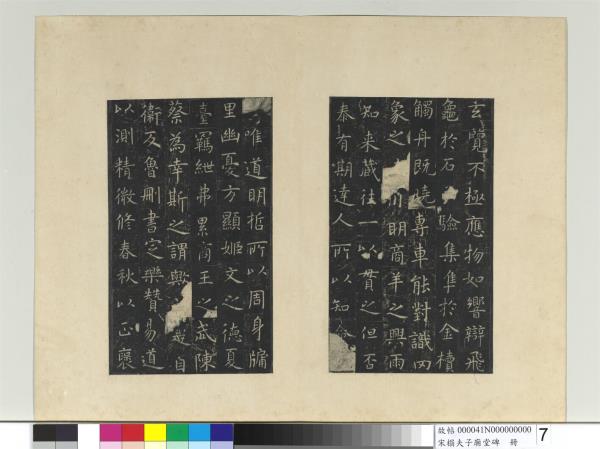 玄覽不極應物如響辯飛
龜於石驗集隼於金櫝
觸舟既曉專車能對識罔
象之川明商羊之興雨
知來藏往一以貫之但否
泰有期達人所以知命
唯道明哲所以周身牖
里幽憂方顯姬文之德夏
臺羈紲弗累商王之武陳
蔡為幸斯之謂歟
自
衛反魯刪書定樂贊易道
以測精微修春秋以正褒
故帖 000041N000000000
宋搨夫子廟堂碑 冊
7